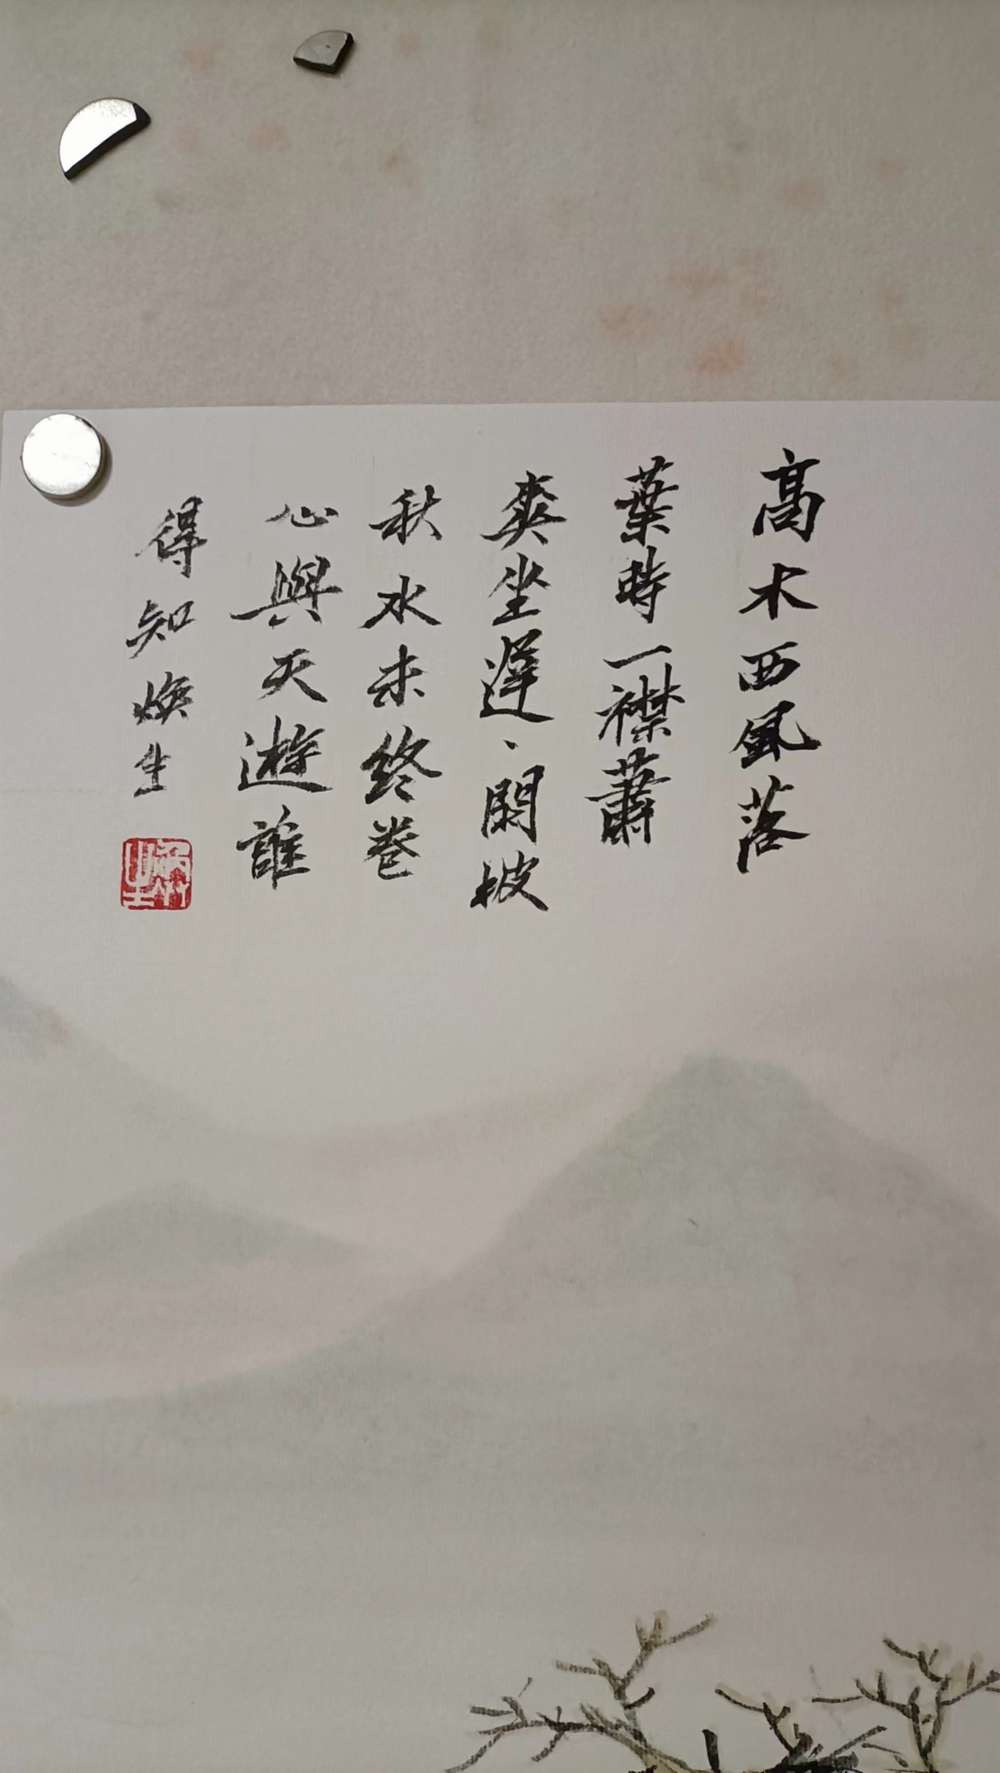 高木西風落
葉時一襟蕭
爽坐遲、閑披
秋水未終卷
心與天遊誰
得知 煥生